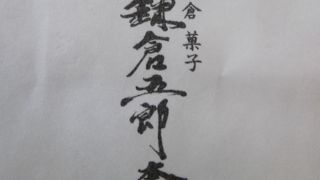 倉菓子
鎌倉五郎本